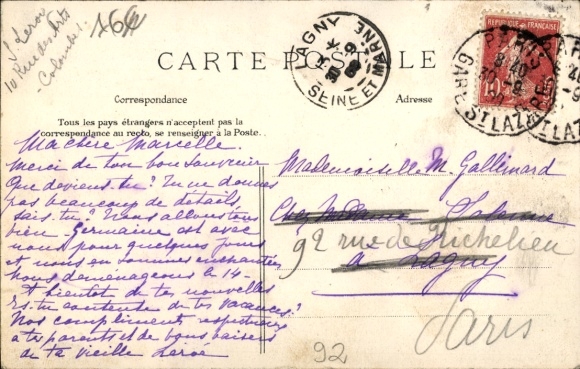 S. Leroy
10 Rue des Arts
-Colombes-
164
CARTE POSTALE
LAGNY
SEINE ET MARNE
RÉPUBLIQUE FRANÇAISE
10
PARIS
8 40
GARE ST LAZARE
Correspondance
Adresse
Tous les pays étrangers n'acceptent pas la
correspondance au recto, se renseigner à la Poste.
Ma chère Marcelle.
Merci de ton bon souvenir
Que deviens-tu ? Tu ne donnes
pas beaucoup de détails
sais-tu ? Nous allons tous
bien. Germaine est avec
nous pour quelques jours
et nous en sommes enchantées
Nous déménageons le 14-
A bientôt de tes nouvelles
Es-tu contente de tes vacances ?
Nos compliments respectueux
à tes parents et de bons baisers
de ta vieille
Mademoiselle M. Gallimard
Chez Madame
92 rue de Richelieu
à Lagny
Paris
92